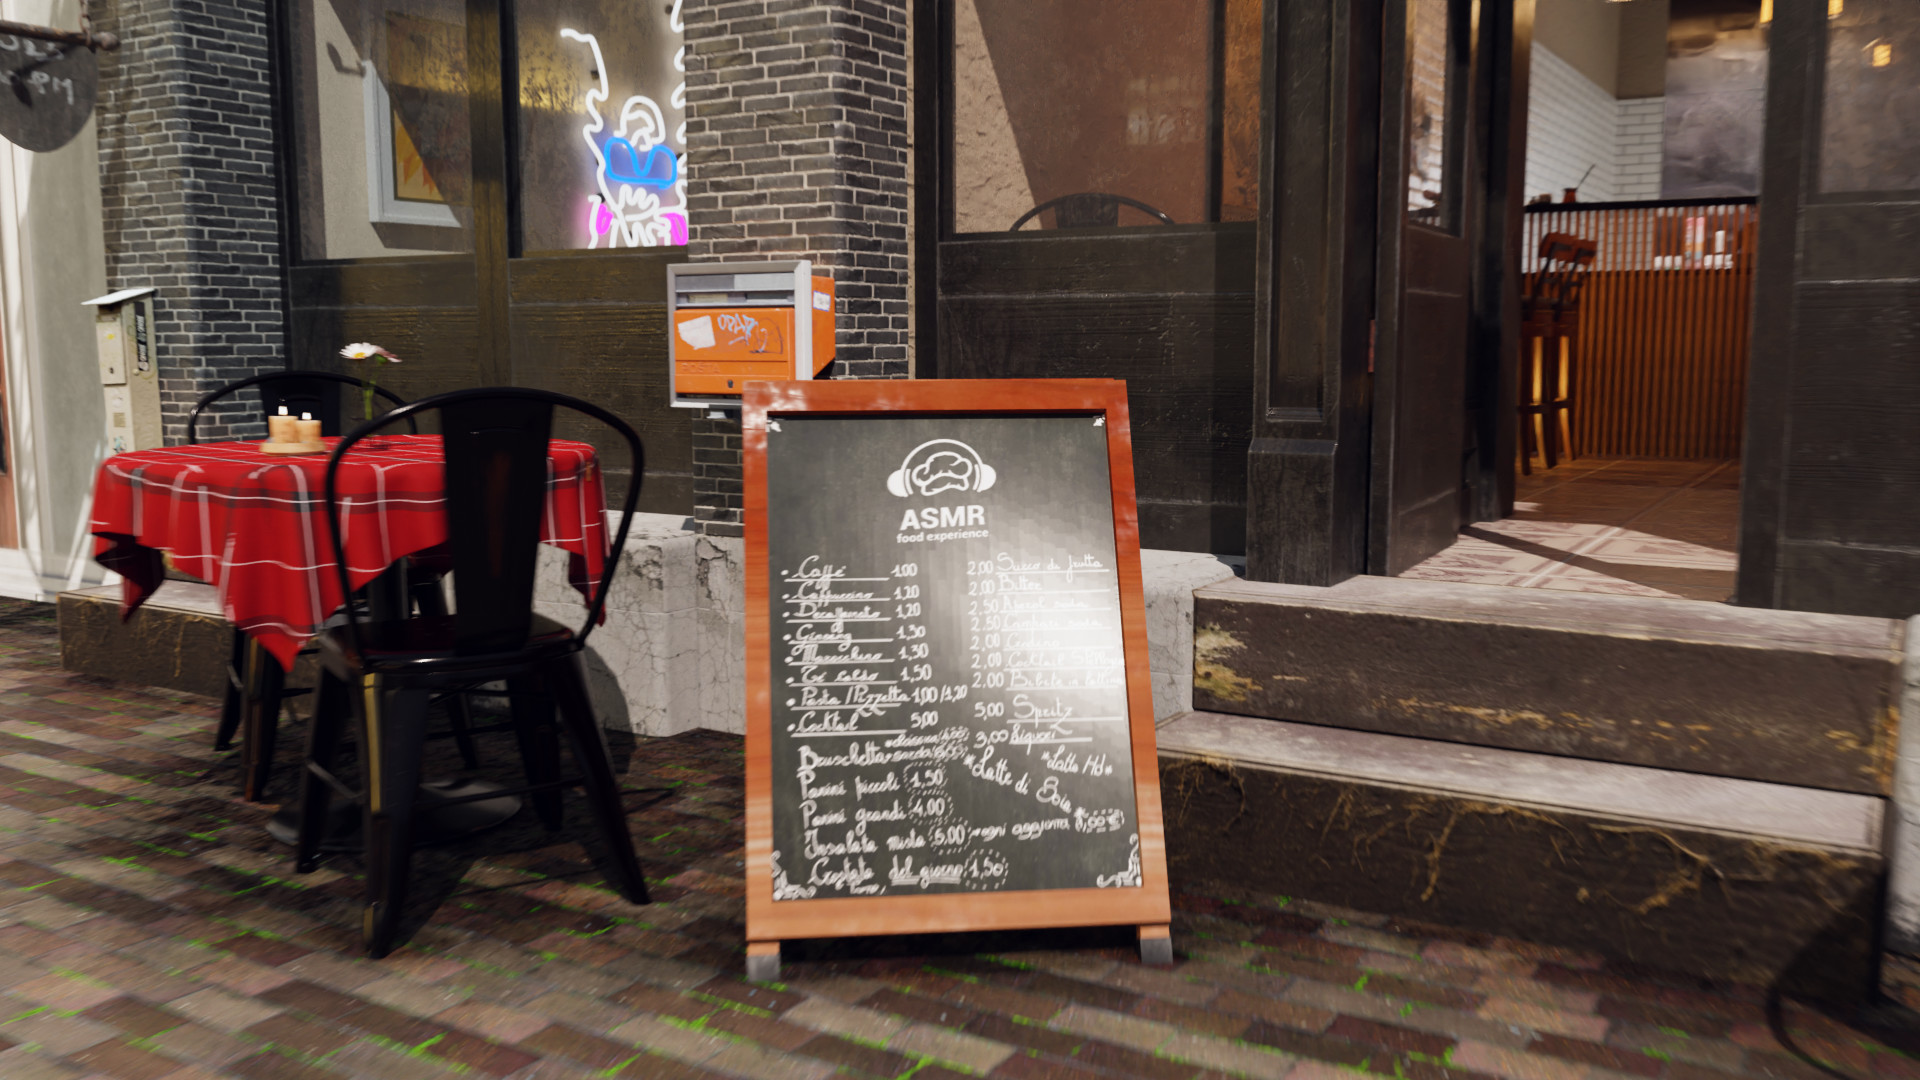 OPAK
POSTA
ASMR
food experience
• Caffe' 1,00
• Cappuccino 1,20
• Decaffeinato 1,20
• Ginseng 1,30
• Marocchino 1,30
• Tè caldo 1,50
• Pasta / Pizzetta 1,00 / 1,20
• Cocktail 5,00
2,00 Succo di frutta
2,00 Bitter
2,50 soda
2,50 Campari soda
2,00
2,00 Cocktail
2,00 Bibite in lattina
5,00 Spritz
3,00 Liquori
*Latte Hd*
*Latte di Soia
Bruschetta
Panini piccoli 1,50
Panini grandi 4,00
Insalata mista 6,00 *ogni aggiunta
Crostata del giorno 1,50